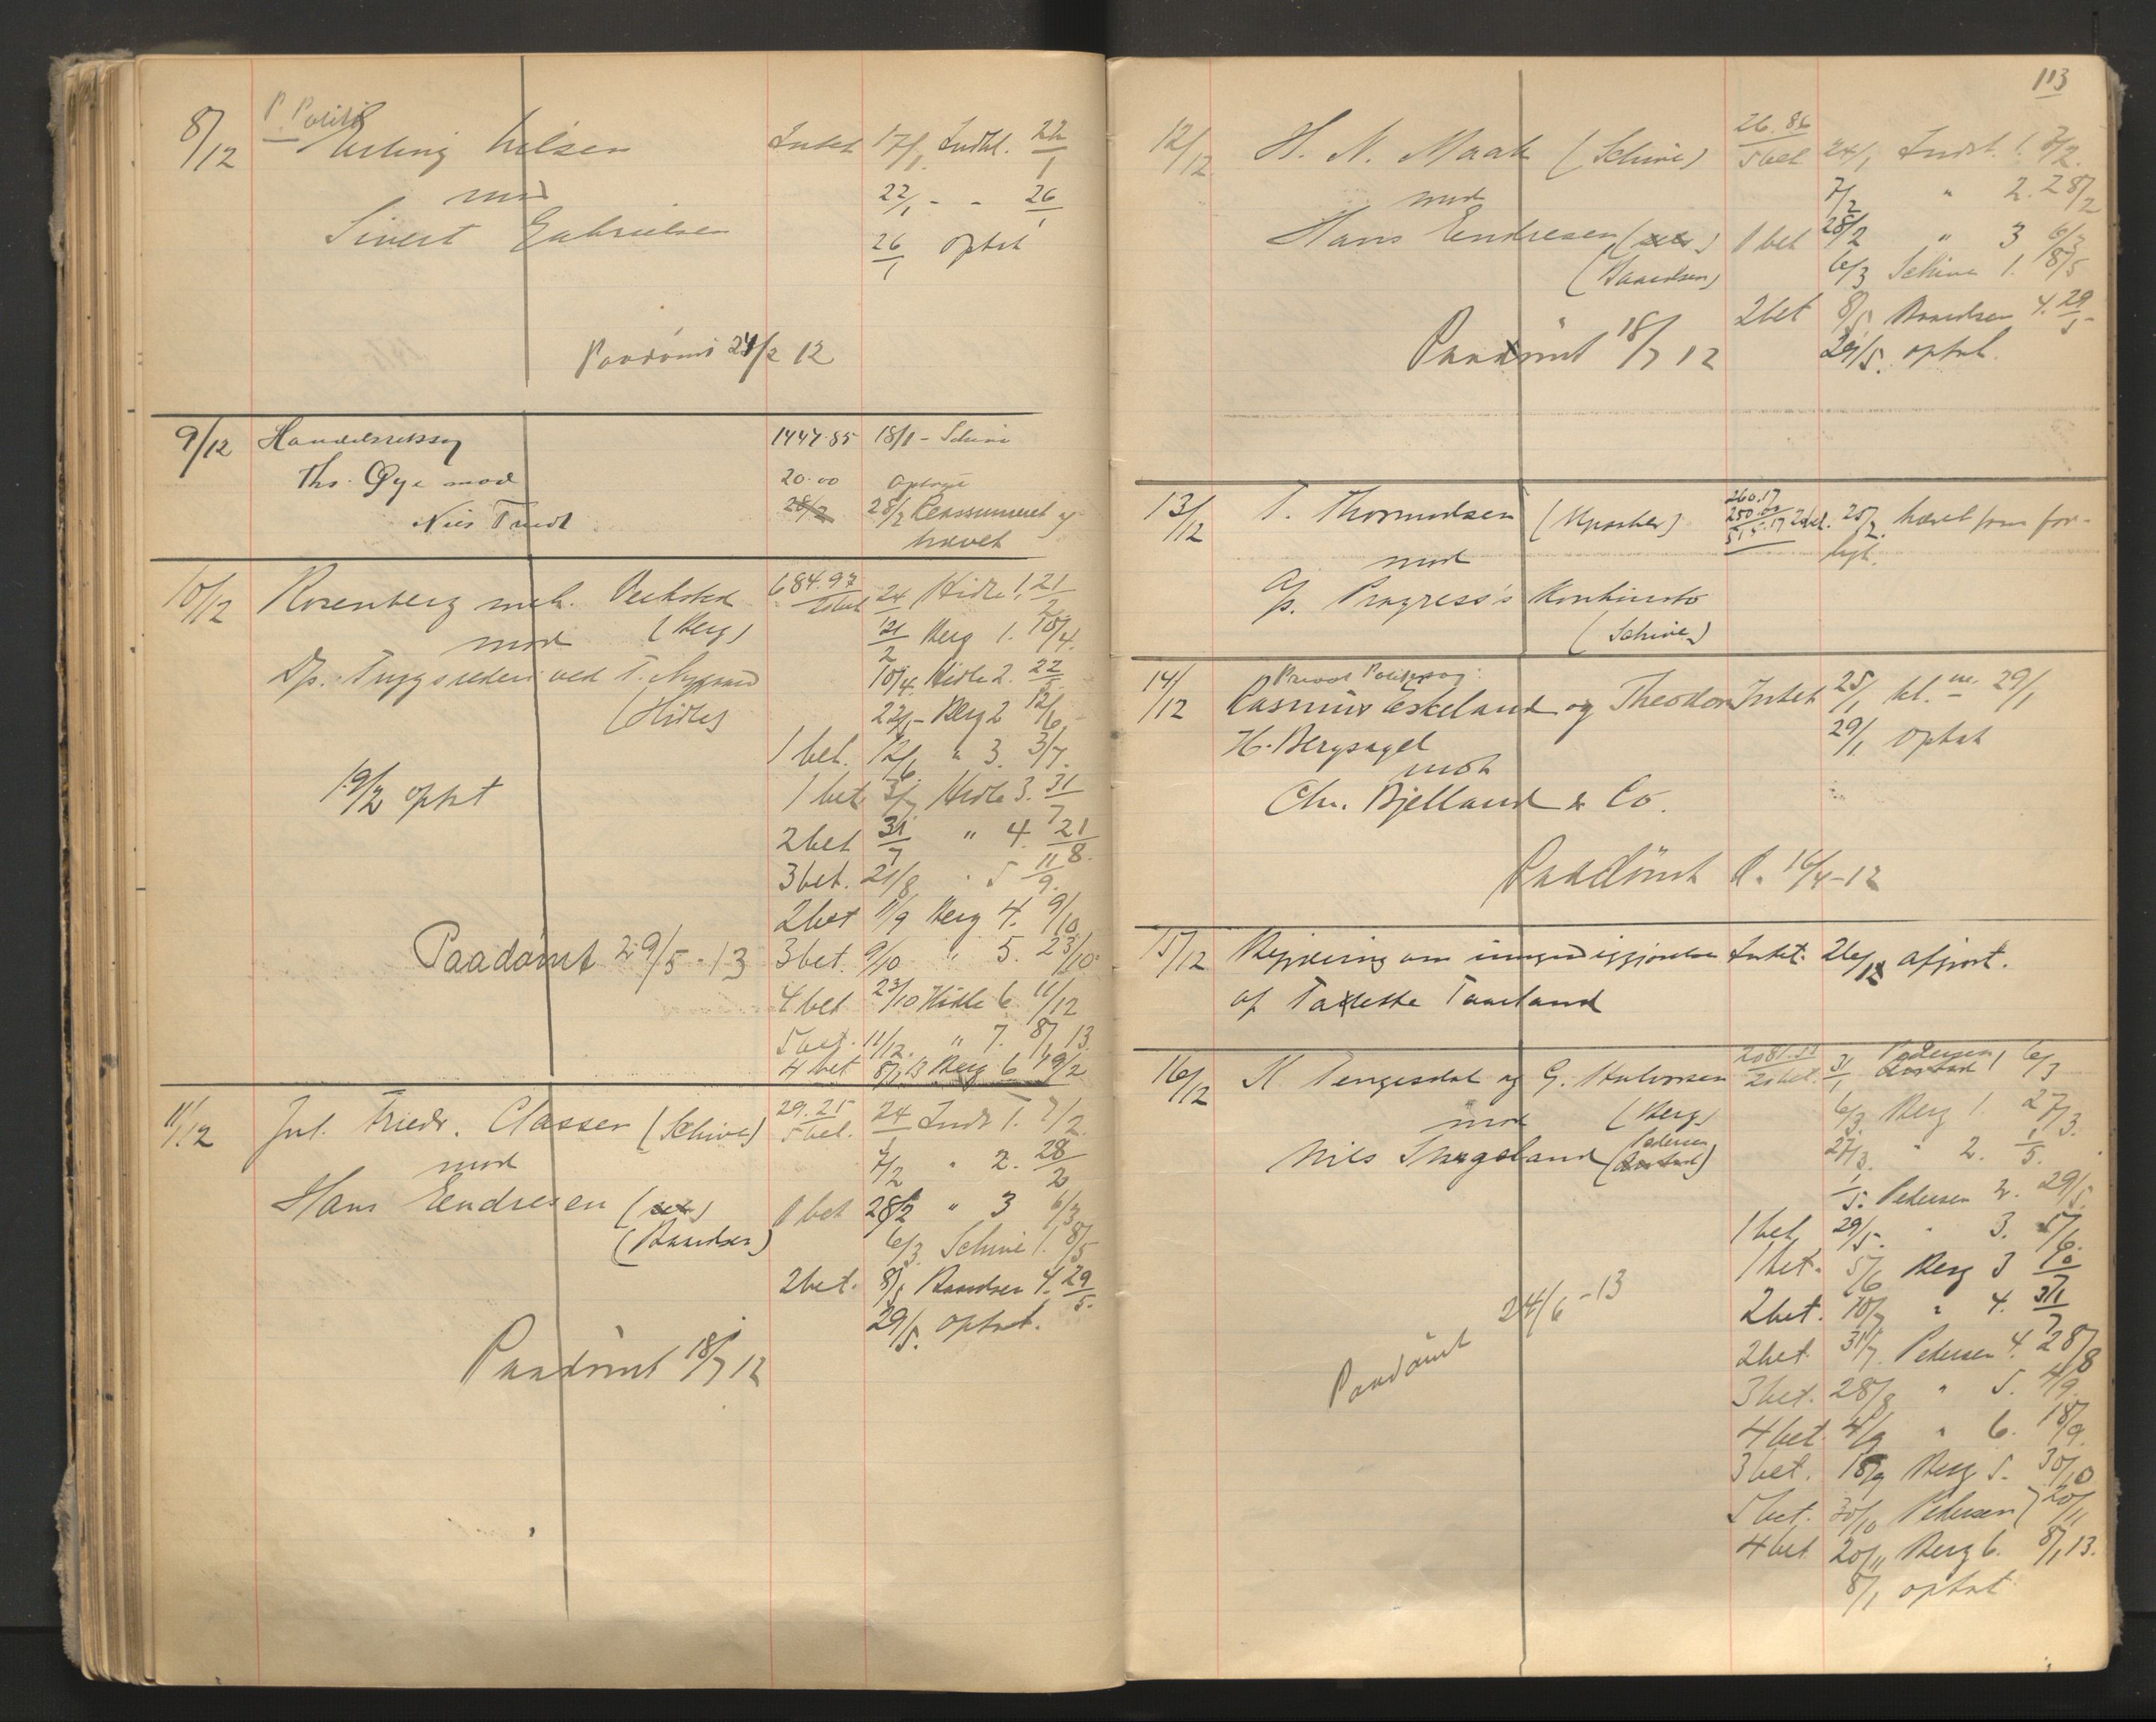 8/12 P. Politi
Erling Nilsen Intet 17/1 Indkl. 22/1
mod 22/1 - - 26/1
Sivert Gabrielsen 26/1 optat
Paadømt 24/2 12
9/12 Handelsretssag 1447.85 18/1 - Schive
Ths. Øye mod 20.00 optaget
Nils Tvedt 28/2 28/2 Reassumeret og
hævet
10/12 Rosenberg mek. Verksted 684.97 2 bet 24/1 Hidle 1. 21/2
mod (Berg) 21/2 Berg 1. 10/4.
D/s. Tryggs rederi ved T. (Hidle) 10/4. Hidle 2. 22/5
22/5 - Berg 2 12/6
1 bet. 12/6 " 3. 3/7.
19/2 optat 1 bet 3/7 Hidle 3. 31/7
2 bet 31/7 " 4. 21/8.
3 bet. 21/8 " 5 11/9.
2 bet 11/9 Berg 4. 9/10
Paadømt 29/5 - 13 3 bet. 9/10 " 5. 23/10.
4 bet 23/10 Hidle 6 11/12
5 bet. 11/12. " 7. 8/1 13.
4 bet 8/1 13 Berg 6 19/2
11/12 Jul. Friedr. Classen (Schive) 29.25 5 bet. 24/1 Inds 1. 7/2.
mod 7/2 " 2. 28/2
Hans Endresen 1 bet 28/2 " 3 6/3
(Baardsen) 6/3 Schive 1. 8/5
2 bet. 8/5 Baardsen 4. 29/5.
29/5. optat.
Paadømt 18/7 12
113
12/12 H. N. Maak (Schive) 26.86 5 bet 24/1 Inds. 1. 7/2.
mod 7/2 " 2. 28/2
Hans Endresen 1 bet 28/2 " 3 6/3
(Baardsen) 6/3 Schive 1. 8/5
2 bet 8/5 Baardsen 4. 29/5
Paadømt 18/7 12 29/5. optat.
13/12 T. Thormodsen 260.17 2 bet. 25/2. hævet som for-
mod ligt.
A/s. Progress's Konkursbo
(Schive)
14/12 Privat Politisag:
Rasmus Eskeland og Theodor Intet 25/1 kl. 29/1
H. Bergsagel 29/1 optat
mot
Chr. Bjelland & Co.
Paadømt d. 16/4 - 12
15/12 Begjæring om umyndiggjørelse Intet. 26/12 afgjort.
af Taaland
16/12 K Tengesdal og G. Halvorsen 2 bet. 31/1 Pedersen 1 6/3
mod (Berg) 6/3. Berg 1. 27/3.
Nils Skagsland (Pedersen) 27/3. " 2. 1/5.
1/5. Pedersen 2. 29/5.
1 bet 29/5. " 3. 5/6.
1 bet. 5/6 Berg 3 10/7
2 bet. 10/7 " 4. 31/7
2 bet. 31/7. Pedersen 4. 28/8
3 bet. 28/8 " 5. 4/9.
4 bet. 4/9 " 6. 18/9.
3 bet. 18/9 Berg 5. 30/10
5 bet. 30/10 Pedersen 7 20/11
4 bet 20/11 Berg 6. 8/1 13.
8/1 optat
Paadømt 24/6 - 13